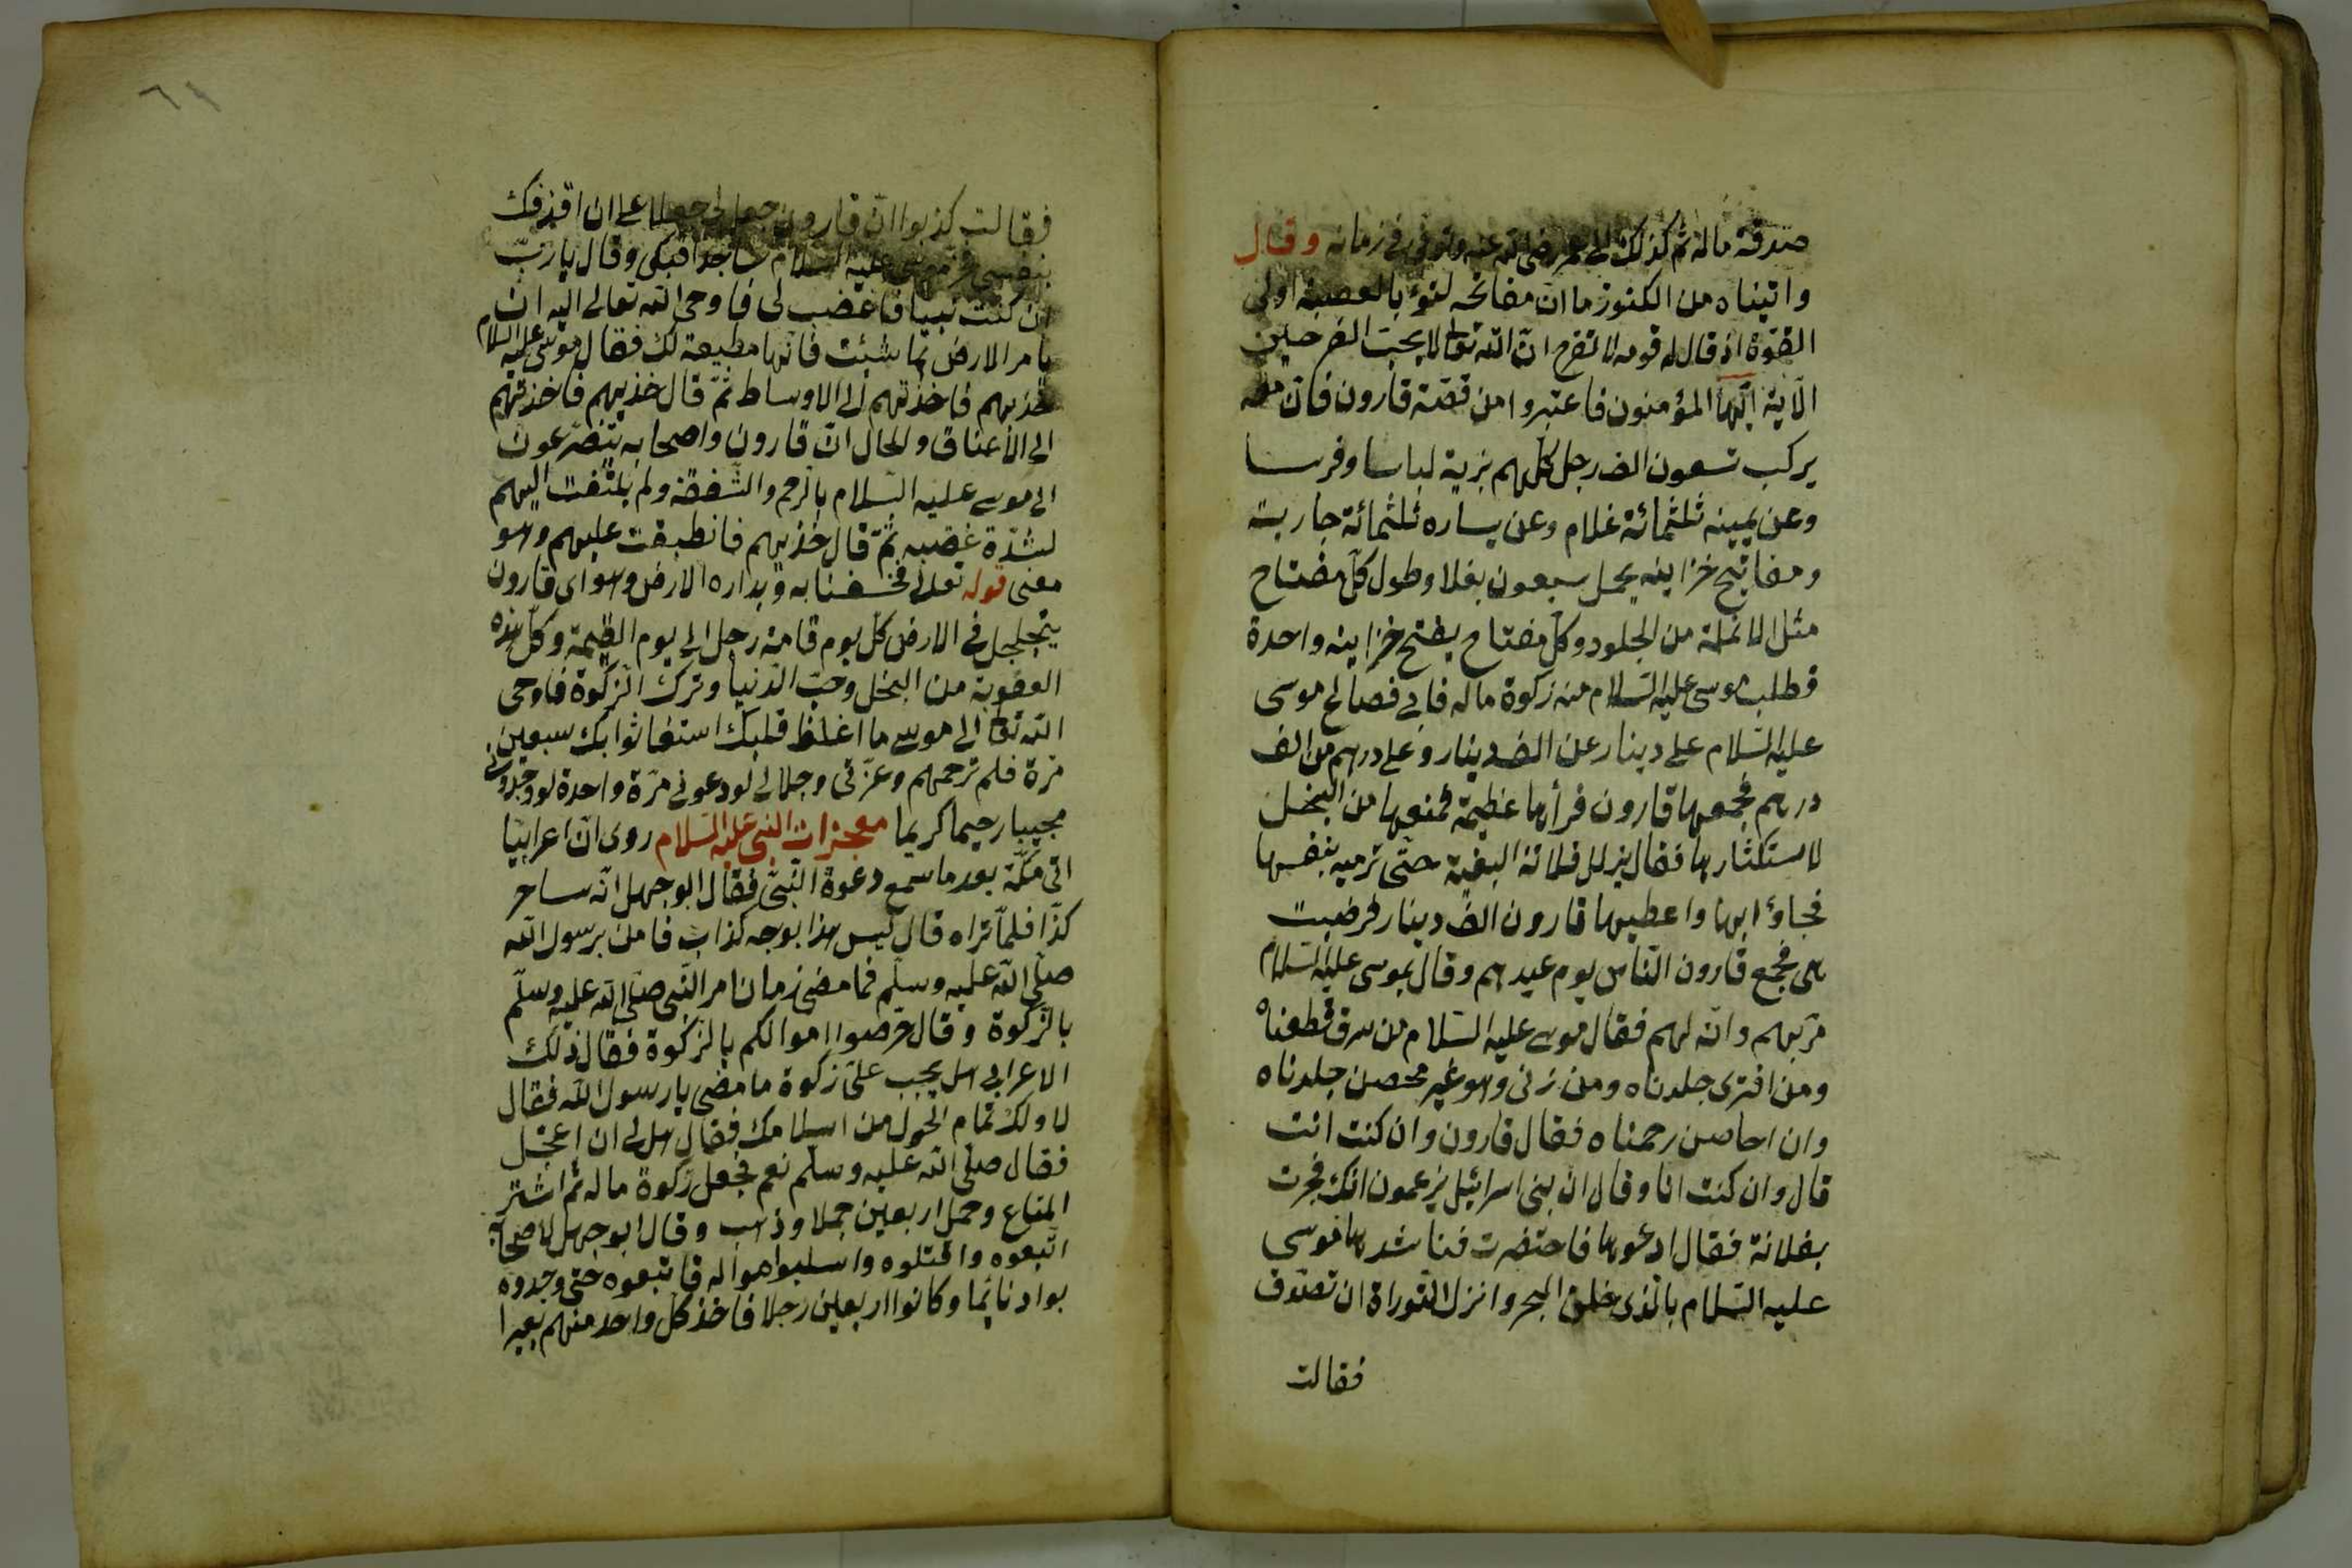 صدقة ماله ثم كذلك الى عمر رضى الله عنه وتوفى فى زمانه وقال
واتيناه من الكنوز ما ان مفاتحه لتنوء بالعصبة اولى
القوة اذ قال له قومه لا تفرح ان الله تعالى لا يحب الفرحين
الآية ايها المؤمنون فاعتبروا من قصة قارون فان معه
يركب تسعون الف رجل كلهم بزية لباسا وفرسا
وعن يمينه ثلثمائة غلام وعن يساره ثلثمائة جارية
ومفاتيح خزاينه يحمل سبعون بغلا وطول كل مفتاح
مثل الانملة من الجلود وكل مفتاح يفتح خزاينه واحدة
فطلب موسى عليه السلام منه زكوة ماله فابى فصالح موسى
عليه السلام على دينار عن الف دينار وعلى درهم من الف
درهم فجمعها قارون فرأها عظيمة فمنعها من البخل
لاستكثارها فقال نزلل فلانة البغية حتى ترميه بنفسها
فجاؤا بها واعطيها قارون الف دينار فرضيت
هى فجمع قارون الناس يوم عيدهم وقال بموسى عليه السلام
مر بهم وانه لهم فقال موسى عليه السلام من سرق قطعناه
ومن افترى جلدناه ومن زنى وهو غير محصن جلدناه
وان احاصن رجمناه فقال قارون وان كنت انت
قال وان كنت انا وقال ان بنى اسرائيل يزعمون انك فجرت
بفلانة فقال ادعوها فاحتضرت فناشدها موسى
عليه السلام بالذى خلق البحر وانزل التوراة ان تصدق
فقالت
٦٩
فقالت كذبوا ان قارون جعل لى جعلا على ان اقذفك
بنفسى فخر موسى عليه السلام ساجدا فبكى وقال يا رب
ان كنت نبيا فاغضب لى فاوحى الله تعالى اليه ان
يامر الارض بما شئت فانها مطيعة لك فقال موسى عليه السلام
خذيهم فاخذتهم الى الاوساط ثم قال خذيهم فاخذتهم
الى الاعناق والحال ان قارون واصحابه يتضرعون
الى موسى عليه السلام بالرحم والشفقة ولم يلتفت اليهم
لشدة غضبه ثم قال خذيهم فانطبقت عليهم وهو
معنى قوله تعالى فخسفنا به وبداره الارض وهو اى قارون
يتجلجل فى الارض كل يوم قامة رجل الى يوم القيمة وكل هذه
العقوبة من البخل وحب الدنيا وترك الزكوة فاوحى
الله تعالى الى موسى ما اغلظ قلبك استغاثوا بك سبعين
مرة فلم ترحمهم وعزتى وجلالى لو دعونى مرة واحدة لوجدونى
مجيبا رحيما كريما معجزات النبى عليه السلام روى ان اعرابيا
اتى مكة بعد ما سمع دعوة النبى فقال ابو جهل انه ساحر
كذا فلما تراه قال ليس هذا بوجه كذاب فامن برسول الله
صلى الله عليه وسلم فما مضى زمان امر النبى صلى الله عليه وسلم
بالزكوة وقال حرصوا اموالكم بالزكوة فقال ذلك
الاعرابى هل يجب على زكوة ما مضى يا رسول الله فقال
لا ولك تمام الحول من اسلامك فقال هل لى ان اعجل
فقال صلى الله عليه وسلم نعم فجعل زكوة ماله ثم اشتر
المتاع وحمل اربعين جملا وذهب وقال ابو جهل لاصحابه
اتبعوه واقتلوه واسلبوا امواله فاتبعوه حتى وجدوه
بواد نائما وكانوا اربعين رجلا فاخذ كل واحد منهم بعيرا